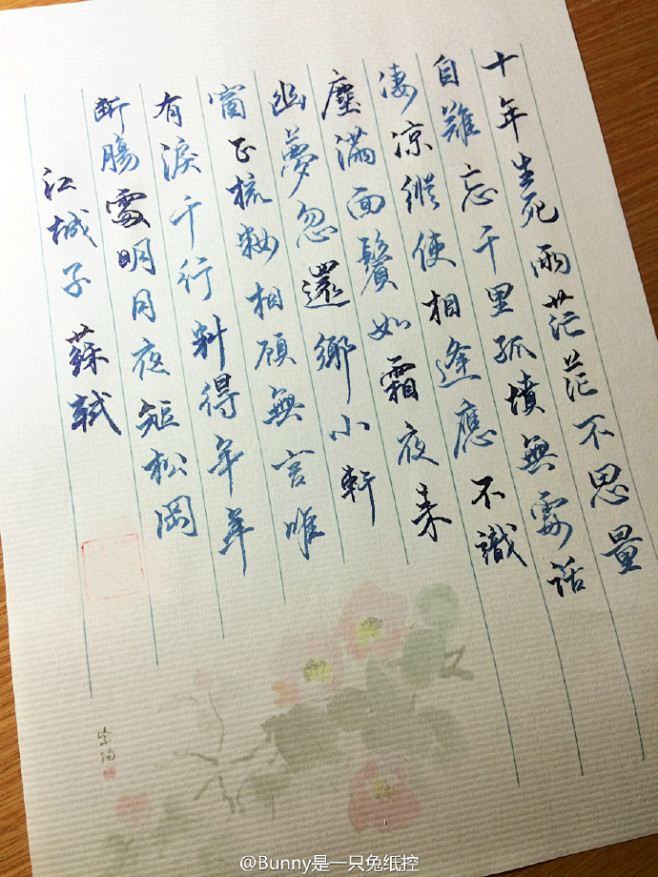 十年生死兩茫茫不思量
自難忘千里孤墳無處話
淒涼縱使相逢應不識
塵滿面鬢如霜夜来
幽夢忽還鄉小軒
窗正梳妝相顧無言唯
有淚千行料得年年
断腸處明月夜短松岡
江城子 蘇軾
@Bunny是一只兔纸控